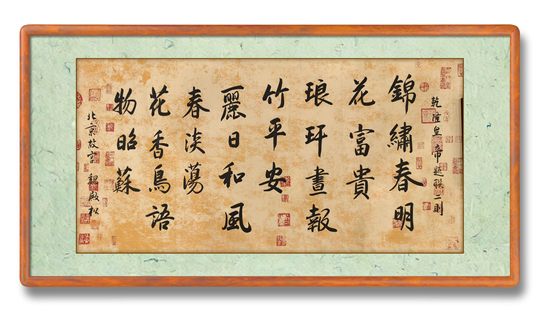 乾隆皇帝題聯二則
錦繡春明
花富貴
琅玕晝報
竹平安
麗日和風
春淡蕩
花香鳥語
物昭蘇
北京故宮